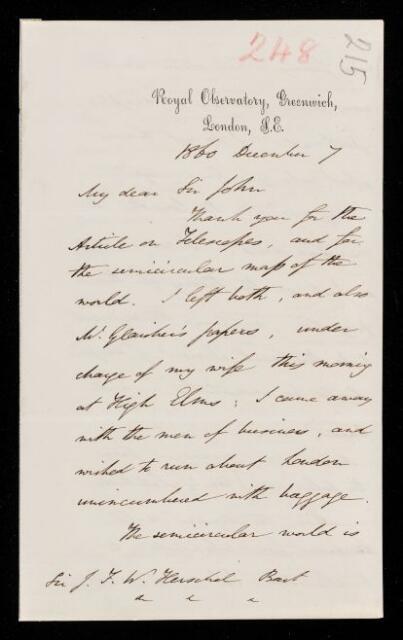 248
215
Royal Observatory, Greenwich,
London, S.E.
1860 December 7
My dear Sir John
Thank you for the
Article on Telescopes, and for
the semicircular map of the
world. I left both, and also
Mr Glaisher's papers, under
charge of my wife this morning
at High Elms; I came away
with the men of business, and
wished to run about London
unincumbered with baggage.
The semicircular world is
Sir J. F. W. Herschel Bart
&c &c &c